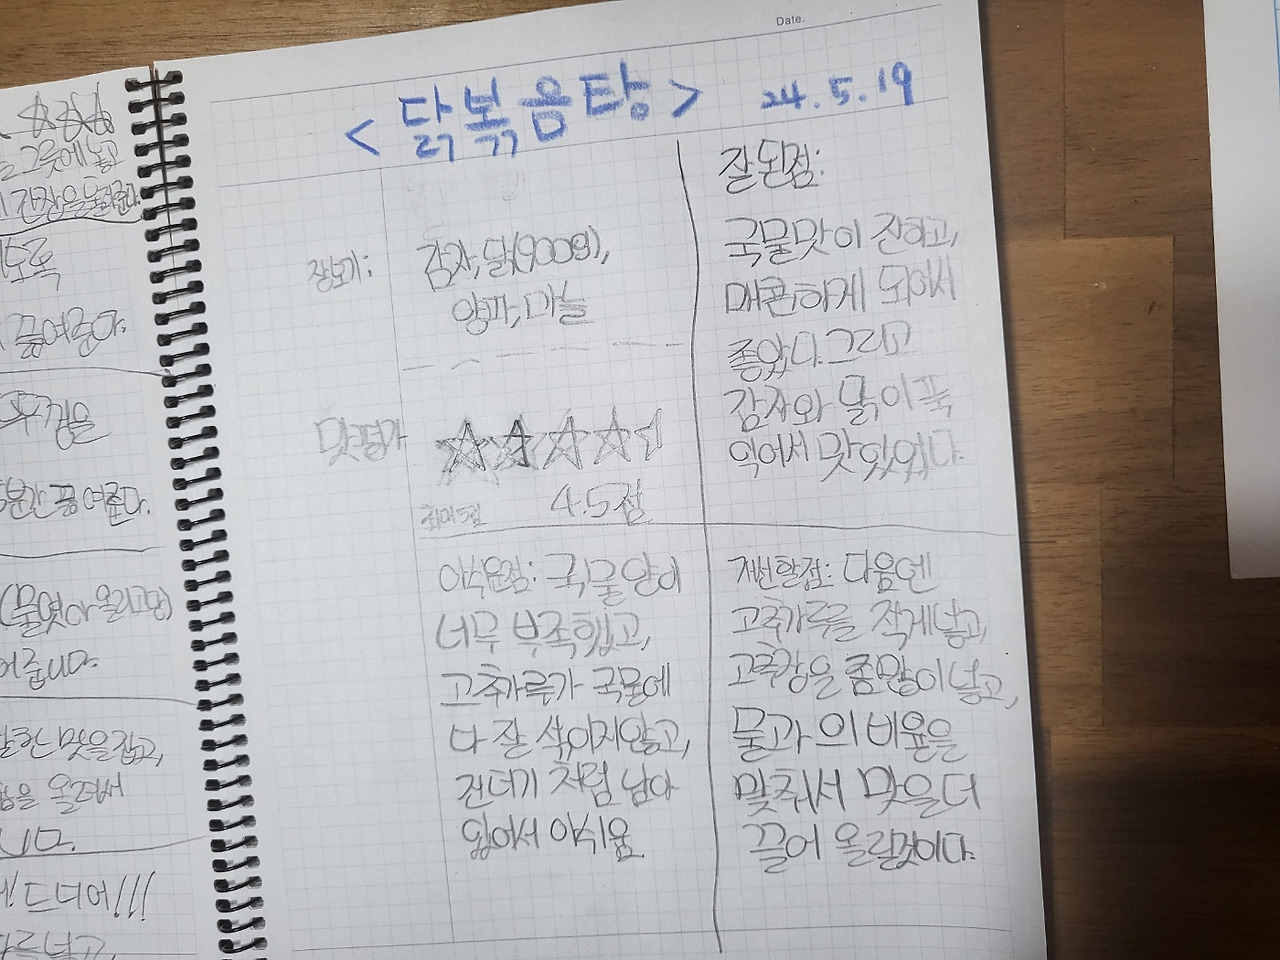 Date.
<닭볶음탕> 24.5.19
장보기: 감자, 닭(900g),
양파, 마늘
맛평가
4.5점
잘된점:
국물맛이 진하고,
매콤하게 되어서
좋았다 그리고
감자와 닭이 푹
익어서 맛있었다.
아쉬운점: 국물양이
너무 부족했고,
고추가루가 국물에
다 잘 석이지않고,
건더기 처럼 남아
있어서 아쉬움
개선할점: 다음엔
고추가루를 작게넣고,
고추장을 좀많이 넣고,
물과의 비율을
맞춰서 맛을 더
끌어 올릴것이다.
그릇에 놓고
간장을
끓여준다.
분간 끓여준다.
(물엿이 올리고당)
어줍니다.
맛을 잡고,
을 올려써
니다.
드디어!!!